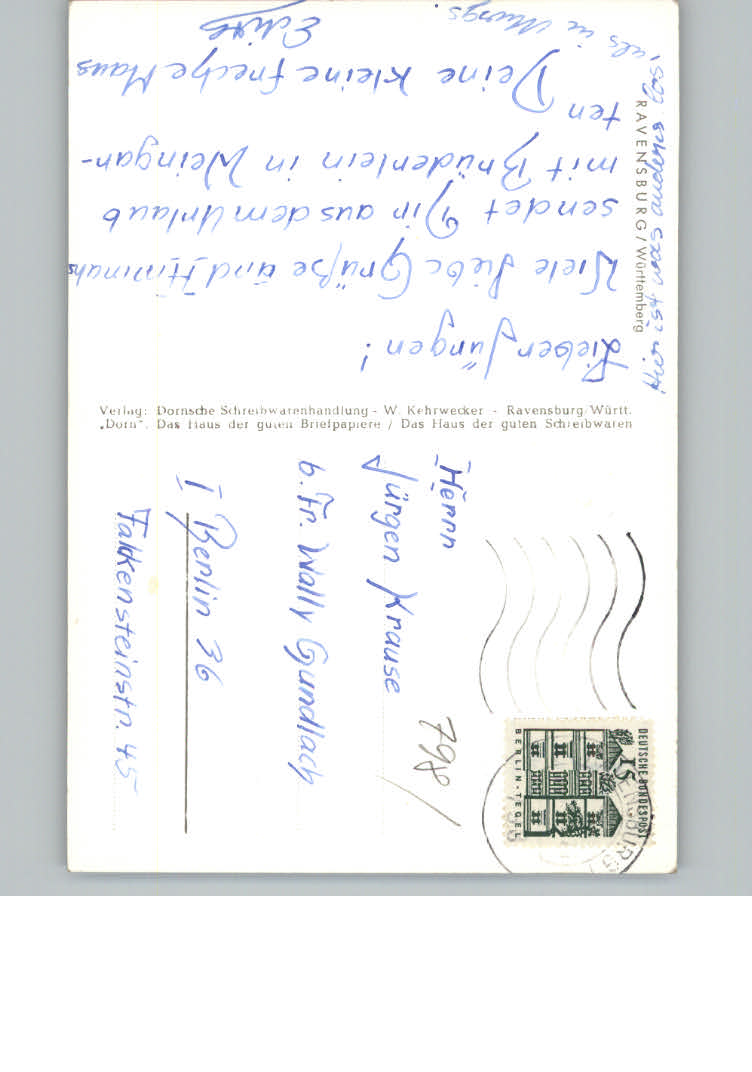 Lieber Jürgen!
Viele liebe Grüße und
sendet Dir aus dem Urlaub
mit Brüderlein in Weingar-
ten
Deine kleine freche Maus
Edith
Hier ist was los,
als in
RAVENSBURG / Württemberg
Verlag: Dornsche Schreibwarenhandlung - W. Kehrwecker - Ravensburg/Württ.
„Dorn", Das Haus der guten Briefpapiere / Das Haus der guten Schreibwaren
Herrn
Jürgen Krause
b. Fr. Wally Gundlach
1 Berlin 36
Falkensteinstr. 45
798/
DEUTSCHE BUNDESPOST
15
BERLIN-TEGEL